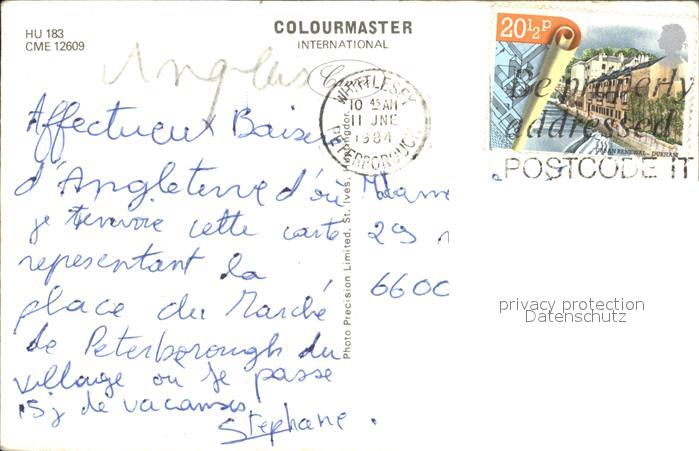 HU 183
CME 12609
COLOURMASTER
INTERNATIONAL
Anglais
WHITTLESEY
10 45 AM
11 JNE
1984
PETERBOROUGH
20½p
URBAN RENEWAL - DURHAM
Be properly
addressed
POSTCODE IT
Affectueux Baisers
d'Angleterre d'où
je t'envoie cette carte
representant la
place du Marché
de Peterborough du
village où je passe
15j de vacances
Stephane.
Photo Precision Limited, St. Ives, Huntingdon.
Madame
29
6600
privacy protection
Datenschutz